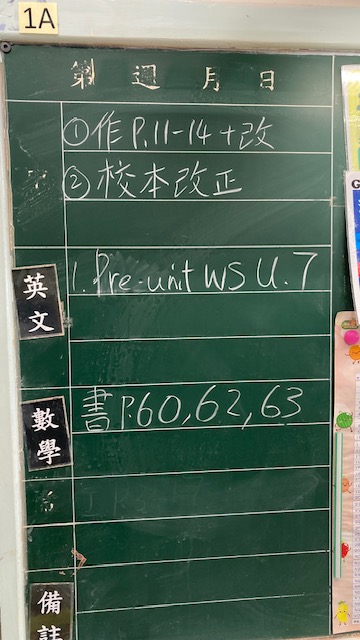 1A
第 週 月 日
①作P.11-14+改
②校本改正
英文
1. Pre-unit WS U.7
數學
書P.60,62,63
備註